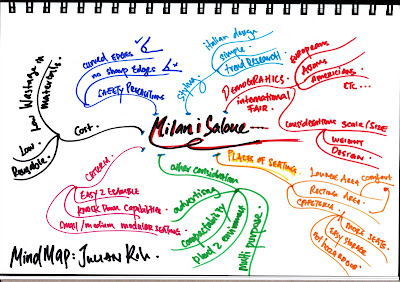 Milan i Salone
Cost.
Low Wastage in
materials.
Low
Reusable.
curved EDGES
no sharp EDGES
SAFETY PRECAUTIONS
Styling
italian design
simple.
trend RESEARCH
DEMOGRAPHICS
international
FAIR.
EUROPEANS
Asians
AMERICANS
ETC...
considerations SCALE/SIZE
WEIGHT
DESIGN
PLACES OF SEATING.
LOUNGE AREA comfort
RESTING AREA.
CAFETERIA
MORE SEATS.
EASY STORAGE
not hazardous
other consideration
advertising
compactability
blend 2 environment
multi purpose.
CRITERIA
EASY 2 EXAMPLE
KNOCK DOWN Capabilities
small/medium modular SEATING
MIND MAP: JULIAN KOH.